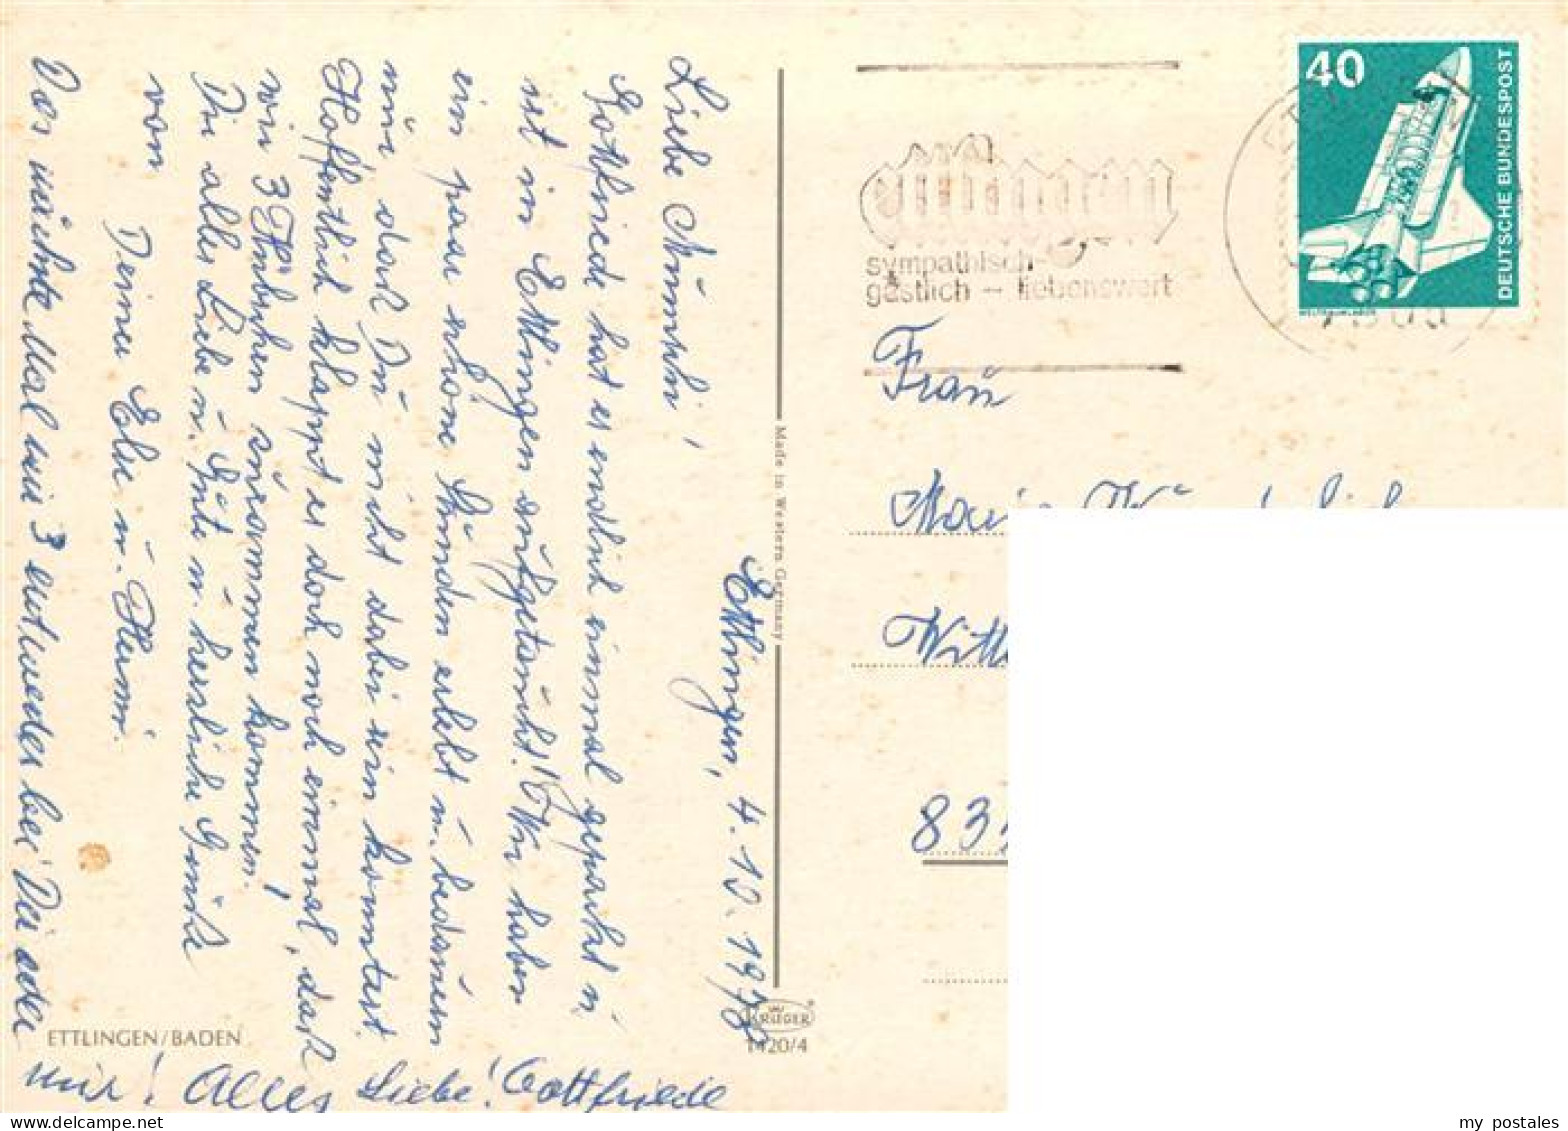 Ettlingen, 4.10.1978
Liebe Nünschi!
Gottfriede hat es endlich einmal gepackt u.
ist in Ettlingen aufgetaucht! Wir haben
ein paar schöne Stunden erlebt u. bedauern
nur daß Du nicht dabei sein konntest.
Hoffentlich klappt es doch noch einmal, daß
wir 3 Hübschen zusammen kommen.
Dir alles Liebe u. Gute u. herzliche Grüße
von
Deiner Else u. Hermi.
Das nächste Mal wir 3 entweder bei Dir oder
mir! Alles Liebe! Gottfriede
ETTLINGEN/BADEN
Made in Western Germany
KRÜGER
1420/4
Ettlingen
sympathisch-
gastlich – liebenswert
40
DEUTSCHE BUNDESPOST
WELTRAUMLABOR
Frau
Maria
833
my postales